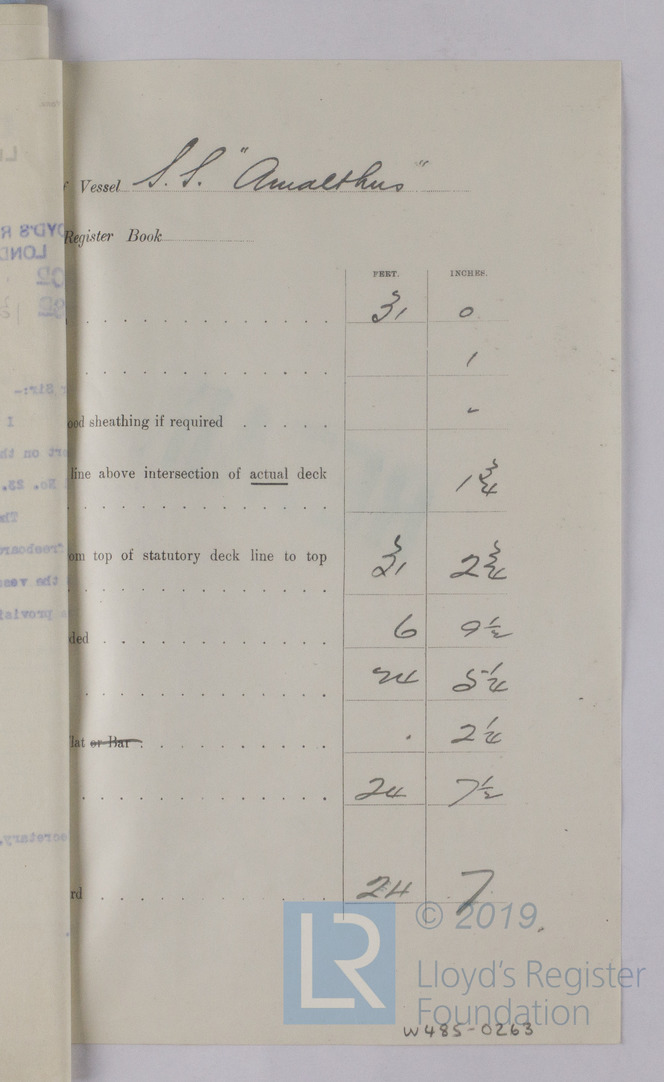 Vessel S.S. "Amalthus"
Register Book
FEET. INCHES.
31 0
1
ood sheathing if required -
line above intersection of actual deck
1 3/4
om top of statutory deck line to top
31 2 3/4
ded 6 9 1/2
24 5 1/4
lat or Bar . 2 1/4
24 7 1/2
rd 24 7
© 2019
LR
Lloyd's Register
Foundation
W485-0263